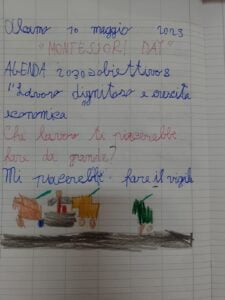 Alcamo 10 maggio 2023
"MONTESSORI DAY"
AGENDA 2030 obiettivo 8
"Lavoro dignitoso e crescita
economica
Che lavoro ti piacerebbe
fare da grande?
Mi piacerebbe fare il vigile